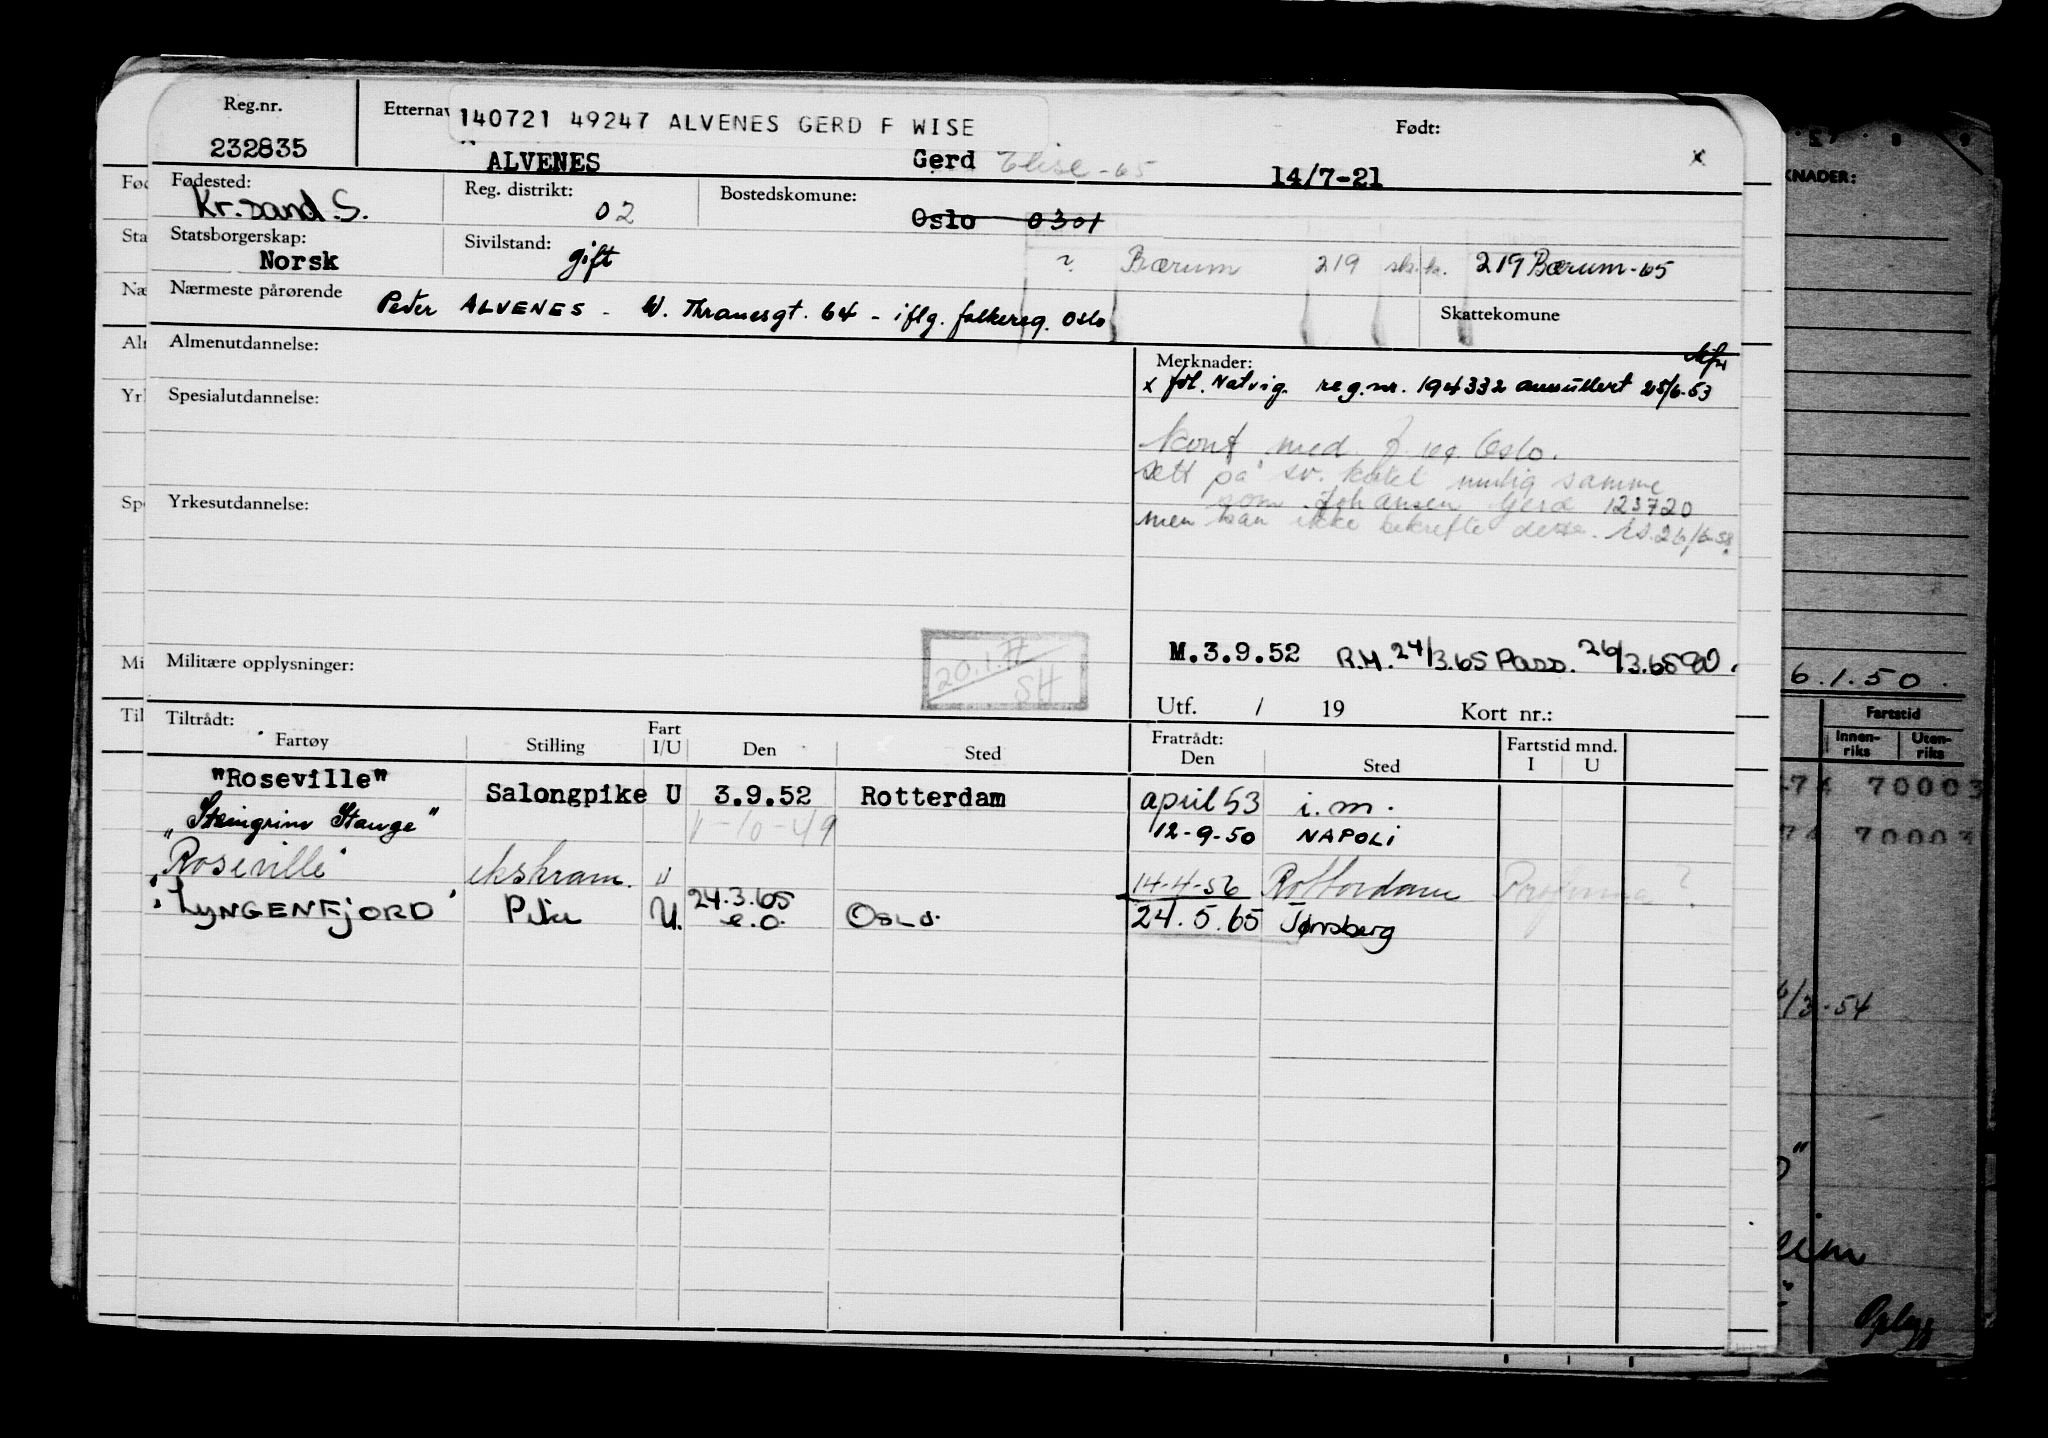 Reg.nr.
232835
Etternav
140721 49247 ALVENES GERD F WISE
Født:
ALVENES Gerd Elise -65 14/7-21 x
Fødested:
Kr.sand S.
Reg. distrikt:
02
Bostedskomune:
Oslo 0301
Statsborgerskap:
Norsk
Sivilstand:
gift
? Bærum 219 sk.k. 219 Bærum-65
Nærmeste pårørende
Peder ALVENES - W. Thranesgt. 64 - iflg. folkereg. Oslo
Skattekomune
Almenutdannelse:
Merknader:
x føt. Natvig. reg.nr. 194332 annullert 25/6-53
Spesialutdannelse:
Konf med f. reg Oslo.
sett på sv. kartel mulig samme
som Johansen Gerd 123720
men kan ikke bekrefte dette. 26/6-58
Yrkesutdannelse:
Militære opplysninger:
20.1.77
SH
M.3.9.52 R.M. 24/3.65 Pass. 26/3.65
Utf. / 19 Kort nr.:
Tiltrådt:
Fartøy Stilling Fart I/U Den Sted
Fratrådt:
Den Sted
Fartstid mnd.
I U
"Roseville" Salongpike U 3.9.52 Rotterdam april 53 i.m.
"Steingrim Stange" 11-10-49 12-9-50 NAPOLI
Roseville ekstram. " 14-4-56 Rotterdam Proforma?
"LYNGENFJORD" Pike U. 24.3.65 e.o. Oslo 24.5.65 Tønsberg
Fød
Sta
Næ
Alr
Yrl
Spe
Mi
Til
KNADER:
6.1.50.
Fartstid
Innen-
riks
Uten-
riks
70003
70003
/3-54